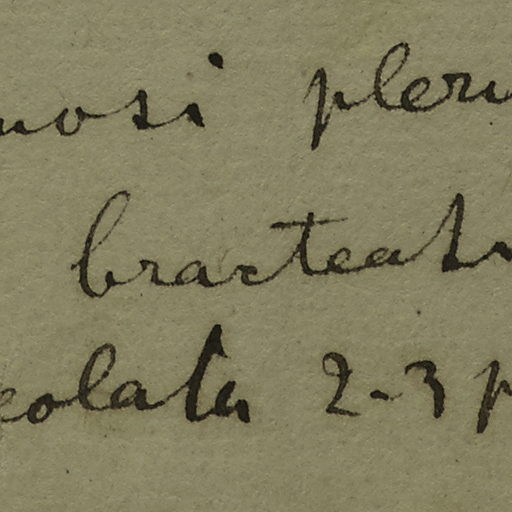 nosi pleru
bracteati
eolata 2-3 p